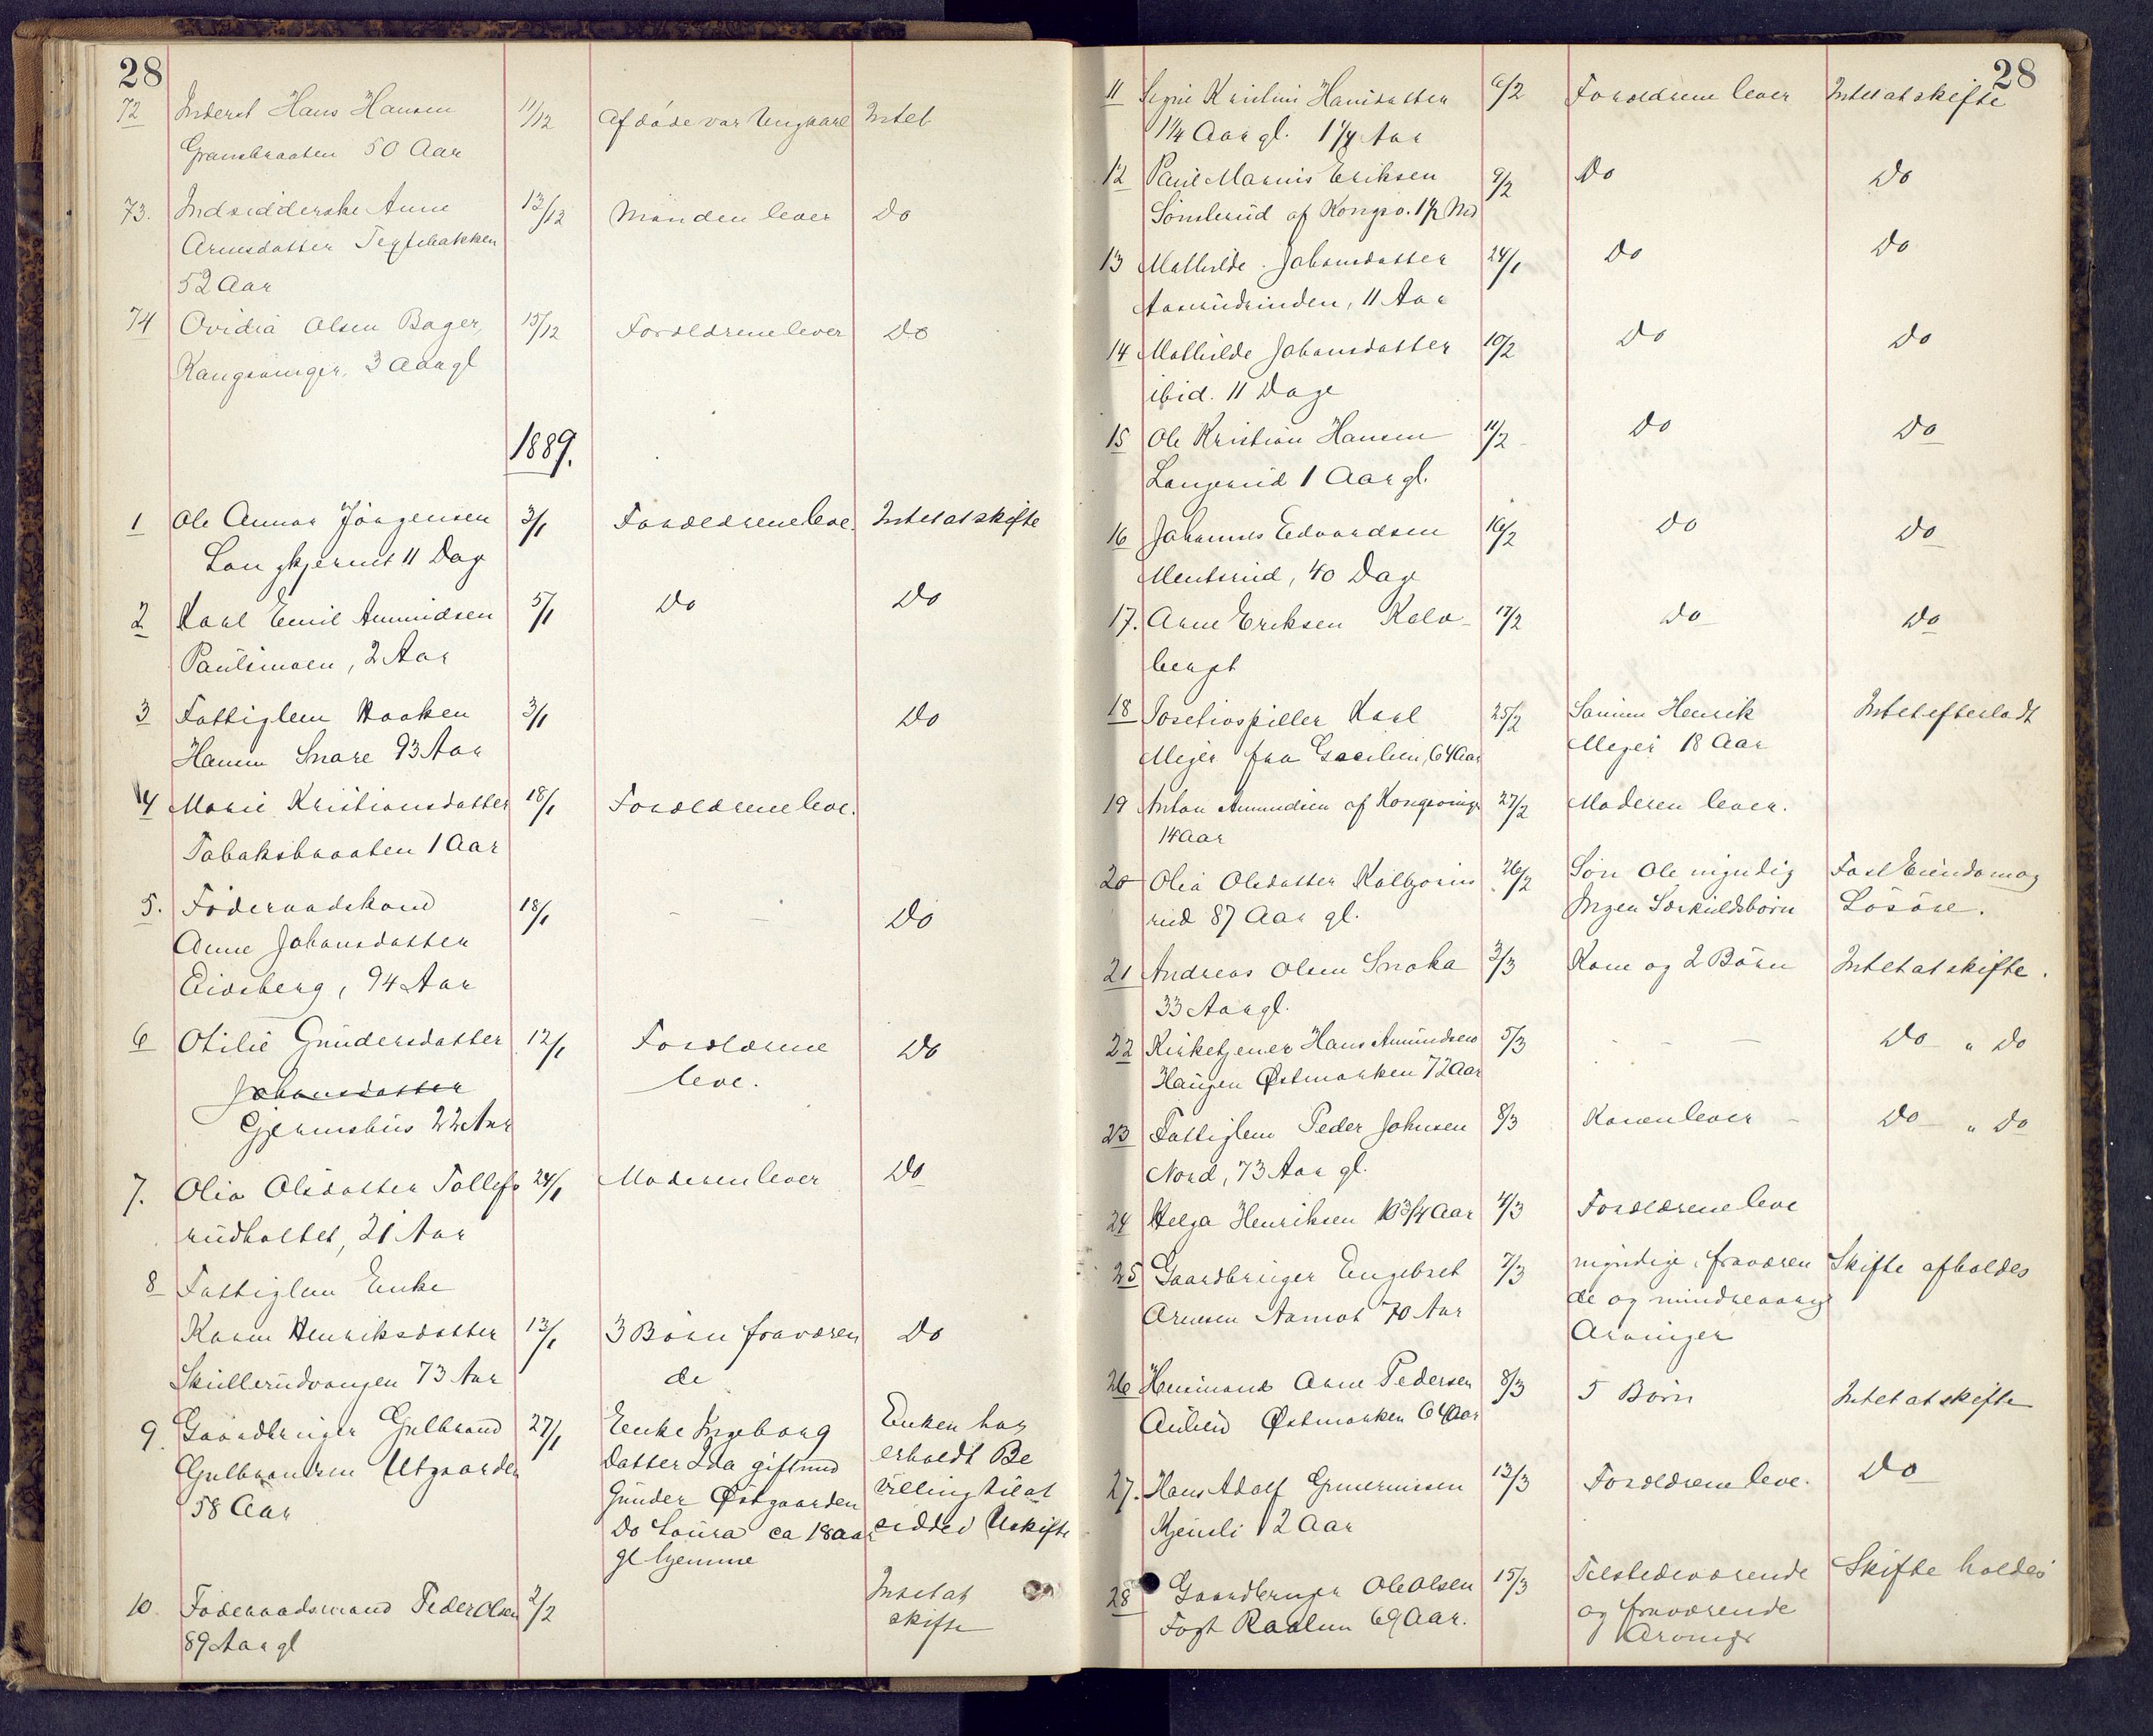 28
72 Inderst Hans Hansen 11/12 Afdöde var Ungkarl Intet
Gransbraaten 50 Aar
73. Indsidderske Anne 13/12 Manden lever Do
Arnesdatter Teglbakken
52 Aar
74 Ovidia Olsen Bager, 15/12 Forældrene lever Do
Kongsvinger, 3 Aar gl
1889.
1 Ole Anton Jörgensen 3/1 Forældrene leve. Intet at skifte
Langkjernet 11 Dag
2 Karl Emil Amundsen 5/1 Do Do
Paulsmoen, 2 Aar
3 Fattiglem Haaken 3/1 Do
Hansen Snare 93 Aar
4 Marie Kristiansdatter 18/1 Forældrene leve.
Tobaksbraaten 1 Aar
5. Föderaadskone 18/1 – – Do
Anne Johansdatter
Eidsberg, 94 Aar
6 Otilie Gundersdatter 12/1 Forældrene Do
Johansdatter leve.
Gjermshus 22 Aar
7. Olia Olsdatter Tollefs 24/1 Moderen lever Do
rudholtet, 21 Aar
8 Fattiglem Enke
Karen Henriksdatter 13/1 3 Börn fraværen Do
Skullerudvangen 73 Aar de
9. Gaardbruger Gulbrand 27/1 Enke Ingeborg Enken har
Gulbrandsen Utgaarden Datter Ida gift med erholdt Be
58 Aar Gunder Østgaarden villing til at
Do Laura ca 18 aar sidde i Uskifte
gl hjemme
10. Föderaadsmand Peder Olsen 2/2 Intet at
89 Aar gl skifte
28
11 Signe Kristine Hansdatter 6/2 Forældrene lever Intet at skifte
1 1/4 Aar gl. 1 1/4 Aar
12 Paul Marnis Eriksen 9/2 Do Do
Sönsterud af Kongsv. 1 1/2 Md
13 Mathilde Johansdatter 24/1 Do Do
Aaserudrinden, 11 Aar
14 Mathilde Johansdatter 10/2 Do Do
ibid. 11 Dage
15 Ole Kristian Hansen 11/2 Do Do
Langerud 1 Aar gl.
16 Johannes Edvardsen 16/2 Do Do
Mentsrud, 40 Dage
17. Arne Eriksen Kalv- 17/2 Do Do
berget
18 Positivspiller Karl 25/2 Sönnen Henrik Intet efterladt
Mejer fra 64 Aar Mejer 18 Aar
19 Anton Amundsen af Kongsvinger 27/2 Moderen lever.
14 Aar
20 Olea Olsdatter Kolbjörns 26/2 Sön Ole myndig Fast Eiendom og
rud 87 Aar gl. Ingen Særkuldsbörn Lösöre.
21 Andreas Olsen Snoka 3/3 Kone og 2 Börn Intet at skifte.
33 Aar gl.
22 Kirketjener Hans Amundsen 5/3 – – – Do " Do
Haugen Østmarken 72 Aar
23 Fattiglem Peder Johnsen 8/3 Konen lever – Do " Do
Nord, 73 Aar gl.
24 Helga Henriksen 10 3/4 Aar 4/3 Forældrene leve
25 Gaardbruger Engebret 7/3 myndige, fraværen Skifte afholdes
Arnesen Aamot 70 Aar de og mindreaarige
Arvinger
26 Husmand Arne Pedersen 8/3 5 Börn Intet at skifte
Østmarken 64 Aar
27. Hans Adolf Guneriussen 13/3 Forældrene leve. Do
Kjensli 12 Aar
28 Gaardbruger Ole Olsen 15/3 Tilstedeværende Skifte holdes
Fogt Raalen 69 Aar. og fraværende
Arvinger